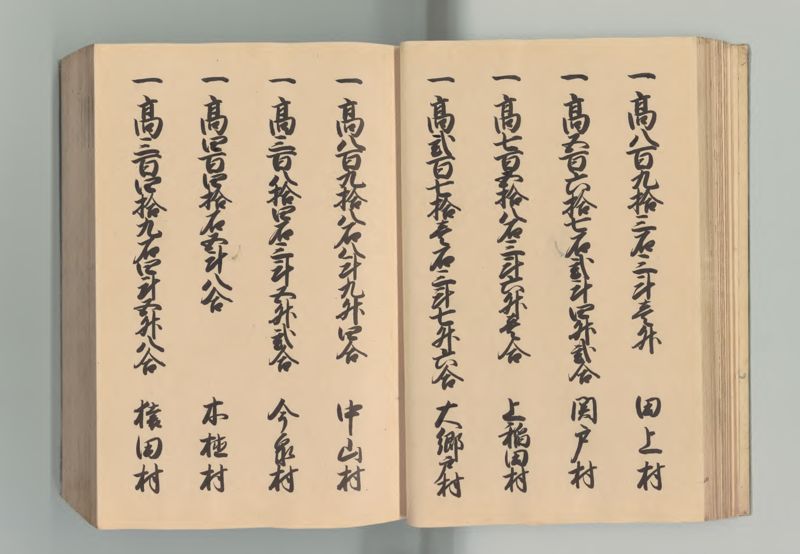 一 高八百九拾三石三斗壱升 田上村
一 高五百六拾七石弐斗四升弐合 関戸村
一 高七百五拾八石三斗六升壱合 上稲田村
一 高弐百七拾壱石三斗七升六合 大郷戸村
一 高八百九拾八石八斗九升四合 中山村
一 高三百八拾四石三斗五升弐合 今泉村
一 高四百四拾石五斗八合 本植村
一 高三百四拾九石四斗五升八合 猿田村